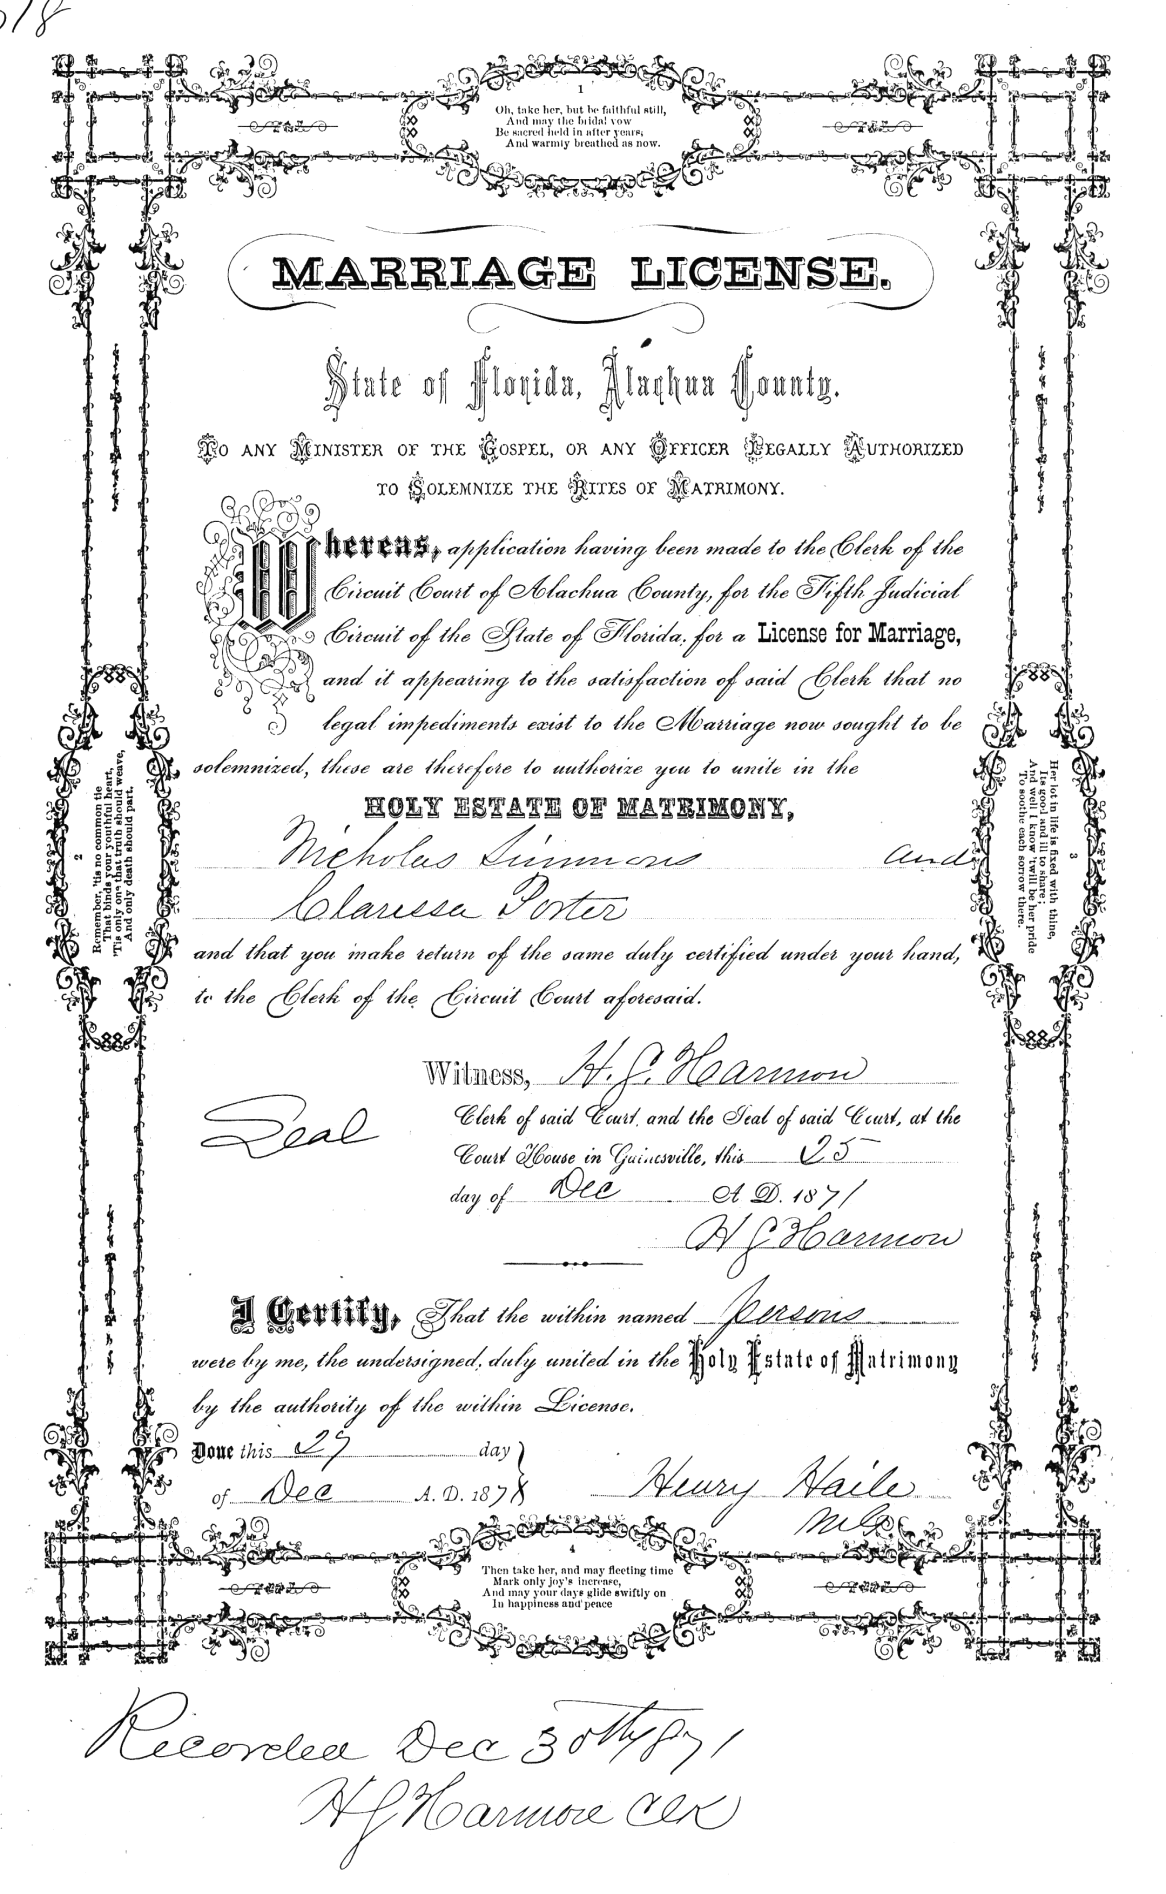 518
1
Oh, take her, but be faithful still,
And may the bridal vow
Be sacred held in after years;
And warmly breathed as now.
MARRIAGE LICENSE.
State of Florida, Alachua County.
TO ANY MINISTER OF THE GOSPEL, OR ANY OFFICER LEGALLY AUTHORIZED
TO SOLEMNIZE THE RITES OF MATRIMONY.
Whereas, application having been made to the Clerk of the
Circuit Court of Alachua County, for the Fifth Judicial
Circuit of the State of Florida, for a License for Marriage,
and it appearing to the satisfaction of said Clerk that no
legal impediments exist to the Marriage now sought to be
solemnized, these are therefore to authorize you to unite in the
HOLY ESTATE OF MATRIMONY,
Nicholas Simmons and
Clarissa Porter
and that you make return of the same duly certified under your hand,
to the Clerk of the Circuit Court aforesaid.
2
Remember, 'tis no common tie
That binds your youthful heart,
'Tis only one that truth should weave,
And only death should part.
3
Her lot in life is fixed with thine,
Its good and ill to share;
And well I know 'twill be her pride
To soothe each sorrow there.
Witness, H. G. Harmon
Seal
Clerk of said Court, and the Seal of said Court, at the
Court House in Gainesville, this 25
day of Dec A. D. 1871
H G Harmon
I Certify, That the within named persons
were by me, the undersigned, duly united in the Holy Estate of Matrimony
by the authority of the within License.
Done this 27 day
of Dec A. D. 1871
Henry Haile
M.G.
4
Then take her, and may fleeting time
Mark only joy's increase,
And may your days glide swiftly on
In happiness and peace
Recorded Dec 30th 1871
H G Harmon Clk